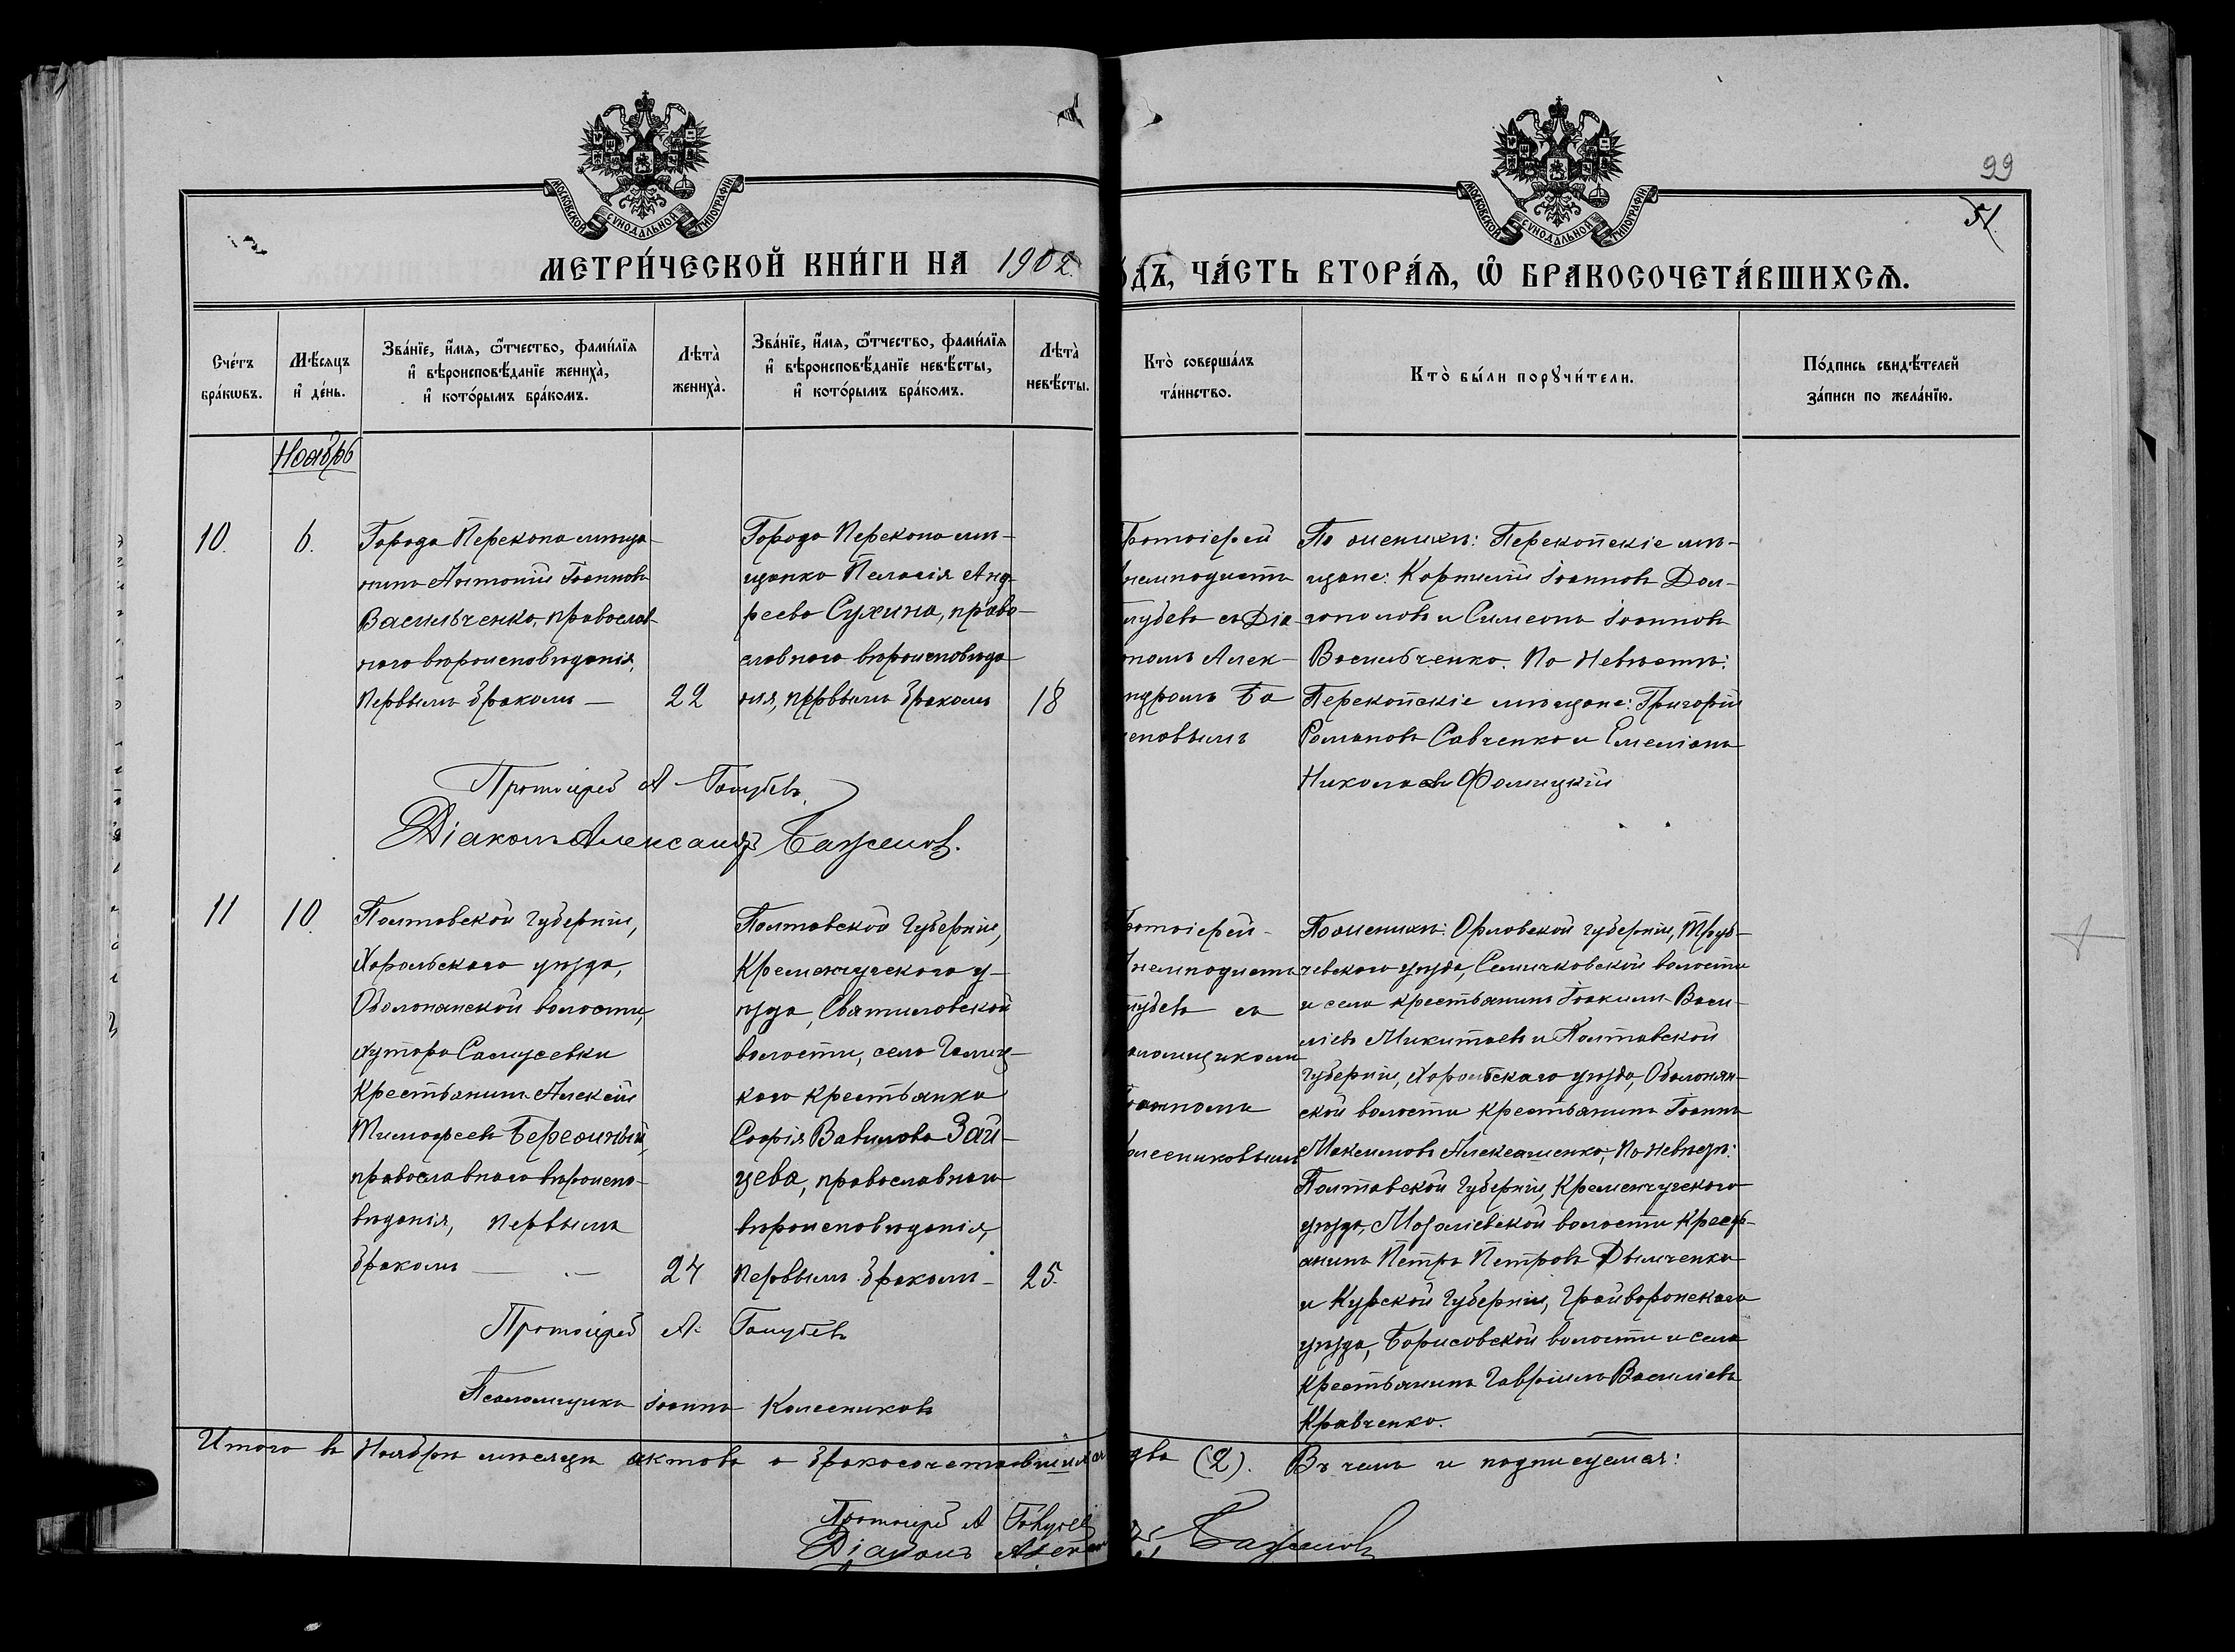 99
51.
МОСКОВСКОЙ СѴНОДАЛЬНОЙ ТИПОГРАФІИ
МОСКОВСКОЙ СѴНОДАЛЬНОЙ ТИПОГРАФІИ
МЕТРИ́ЧЕСКОЙ КНИ́ГИ НА 1902.
О́ДЪ, ЧА́СТЬ ВТОРА́Ѧ, Ѡ҆ БРАКОСОЧЕТА́ВШИХСѦ.
Сче́тъ
бра́кѡвъ.
Мѣ́сяцъ
и҆ де́нь.
Зва́нїе, и҆́мя, ѻ҆́тчество, фами́лїя
и҆ вѣроисповѣ́данїе жениха̀,
и҆ кото́рымъ бра́комъ.
Лѣта̀
жениха̀.
Зва́нїе, и҆́мя, ѻ҆́тчество, фами́лїя
и҆ вѣроисповѣ́данїе невѣ́сты,
и҆ кото́рымъ бра́комъ.
Лѣта̀
невѣ́сты.
Кто̀ соверша́лъ
та́инство.
Кто̀ бы́ли порꙋчи́тели.
По́дпись свидѣ́телей
за́писи по жела́нїю.
Ноябрь
10.
6.
Города Перекопа мѣща-
нинъ Антоній Іоанновъ
Васильченко, православ-
наго вѣроисповѣданія,
первымъ бракомъ —
22
Города Перекопа мѣ-
щанка Пелагія Анд-
реева Сухина, право-
славнаго вѣроисповѣда-
нія, первымъ бракомъ
18
ротоіерей
немподистъ
лубевъ съ Діа-
ономъ Алек-
ндромъ Ба
еновымъ
По женихѣ: Перекопскіе мѣ-
щане: Корнилій Іоанновъ Дол-
гополовъ и Симеонъ Іоанновъ
Васильченко. По Невѣстѣ:
Перекопскіе мѣщане: Григорій
Романовъ Савченко и Емеліанъ
Николаевъ Фомицкій
Протоіерей А Голубевъ
Діаконъ Александръ Баженовъ.
11
10.
Полтавской губерніи,
Хорольскаго уѣзда,
Оболонянской волости,
хутора Самусевки
крестьянинъ Алексій
Тимофеевъ Бережный,
православнаго вѣроиспо-
вѣданія, первымъ
бракомъ —
24
Полтавской Губерніи,
Кременчугскаго у-
ѣзда, Святиловской
волости, села Гамиц-
каго крестьянка
Софія Вавилова Зай-
цева, православнаго
вѣроисповѣданія,
первымъ бракомъ —
25.
ротоіерей
немподистъ
лубевъ съ
аломщикомъ
оанномъ
олесниковымъ
По женихѣ: Орловской губерніи, Труб-
чевскаго уѣзда, Семячковской волости
и села крестьянинъ Іоакимъ Васи-
ліевъ Микитаевъ и Полтавской
Губерніи, Хорольскаго уѣзда, Оболонян-
ской волости крестьянинъ Іоаннъ
Максимовъ Алексашенко; По невѣстѣ:
Полтавской Губерніи, Кременчугскаго
уѣзда, волости Кресть-
янинъ Петръ Петровъ Дымченко
и Курской Губерніи, Грайворонскаго
уѣзда, Борисовской волости и села
крестьянинъ Гавріилъ Василіевъ
Кравченко.
Протоіерей А. Голубевъ
Псаломщикъ Іоаннъ Колесниковъ
Итого въ Ноябрѣ мѣсяцѣ актовъ о бракосочетавшихся два (2). Въ чемъ и подписуемся:
Протоіерей А Голубев
Діаконъ Баженовъ